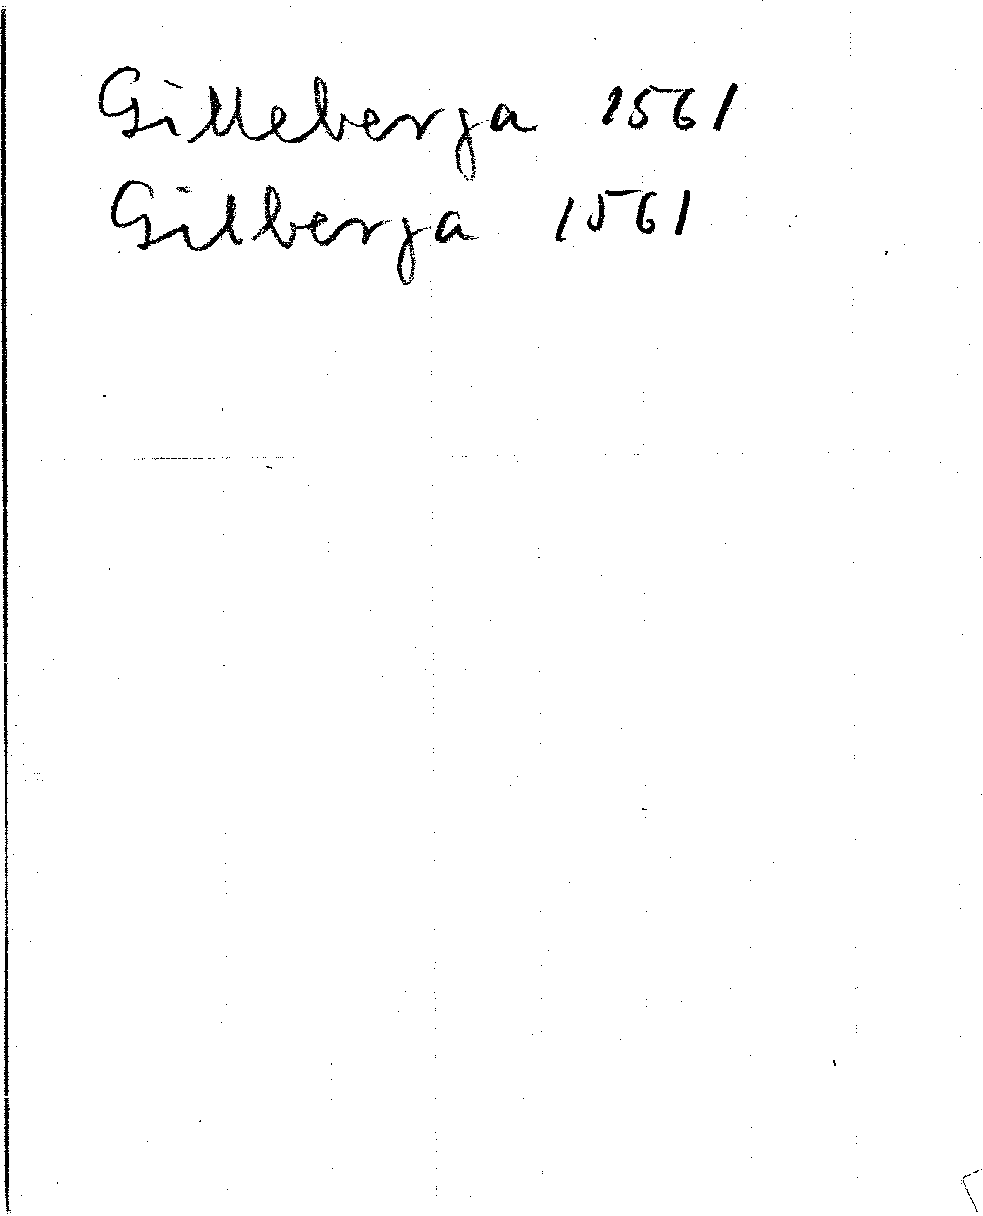 Gilleberga 1561
Gilberga 1561